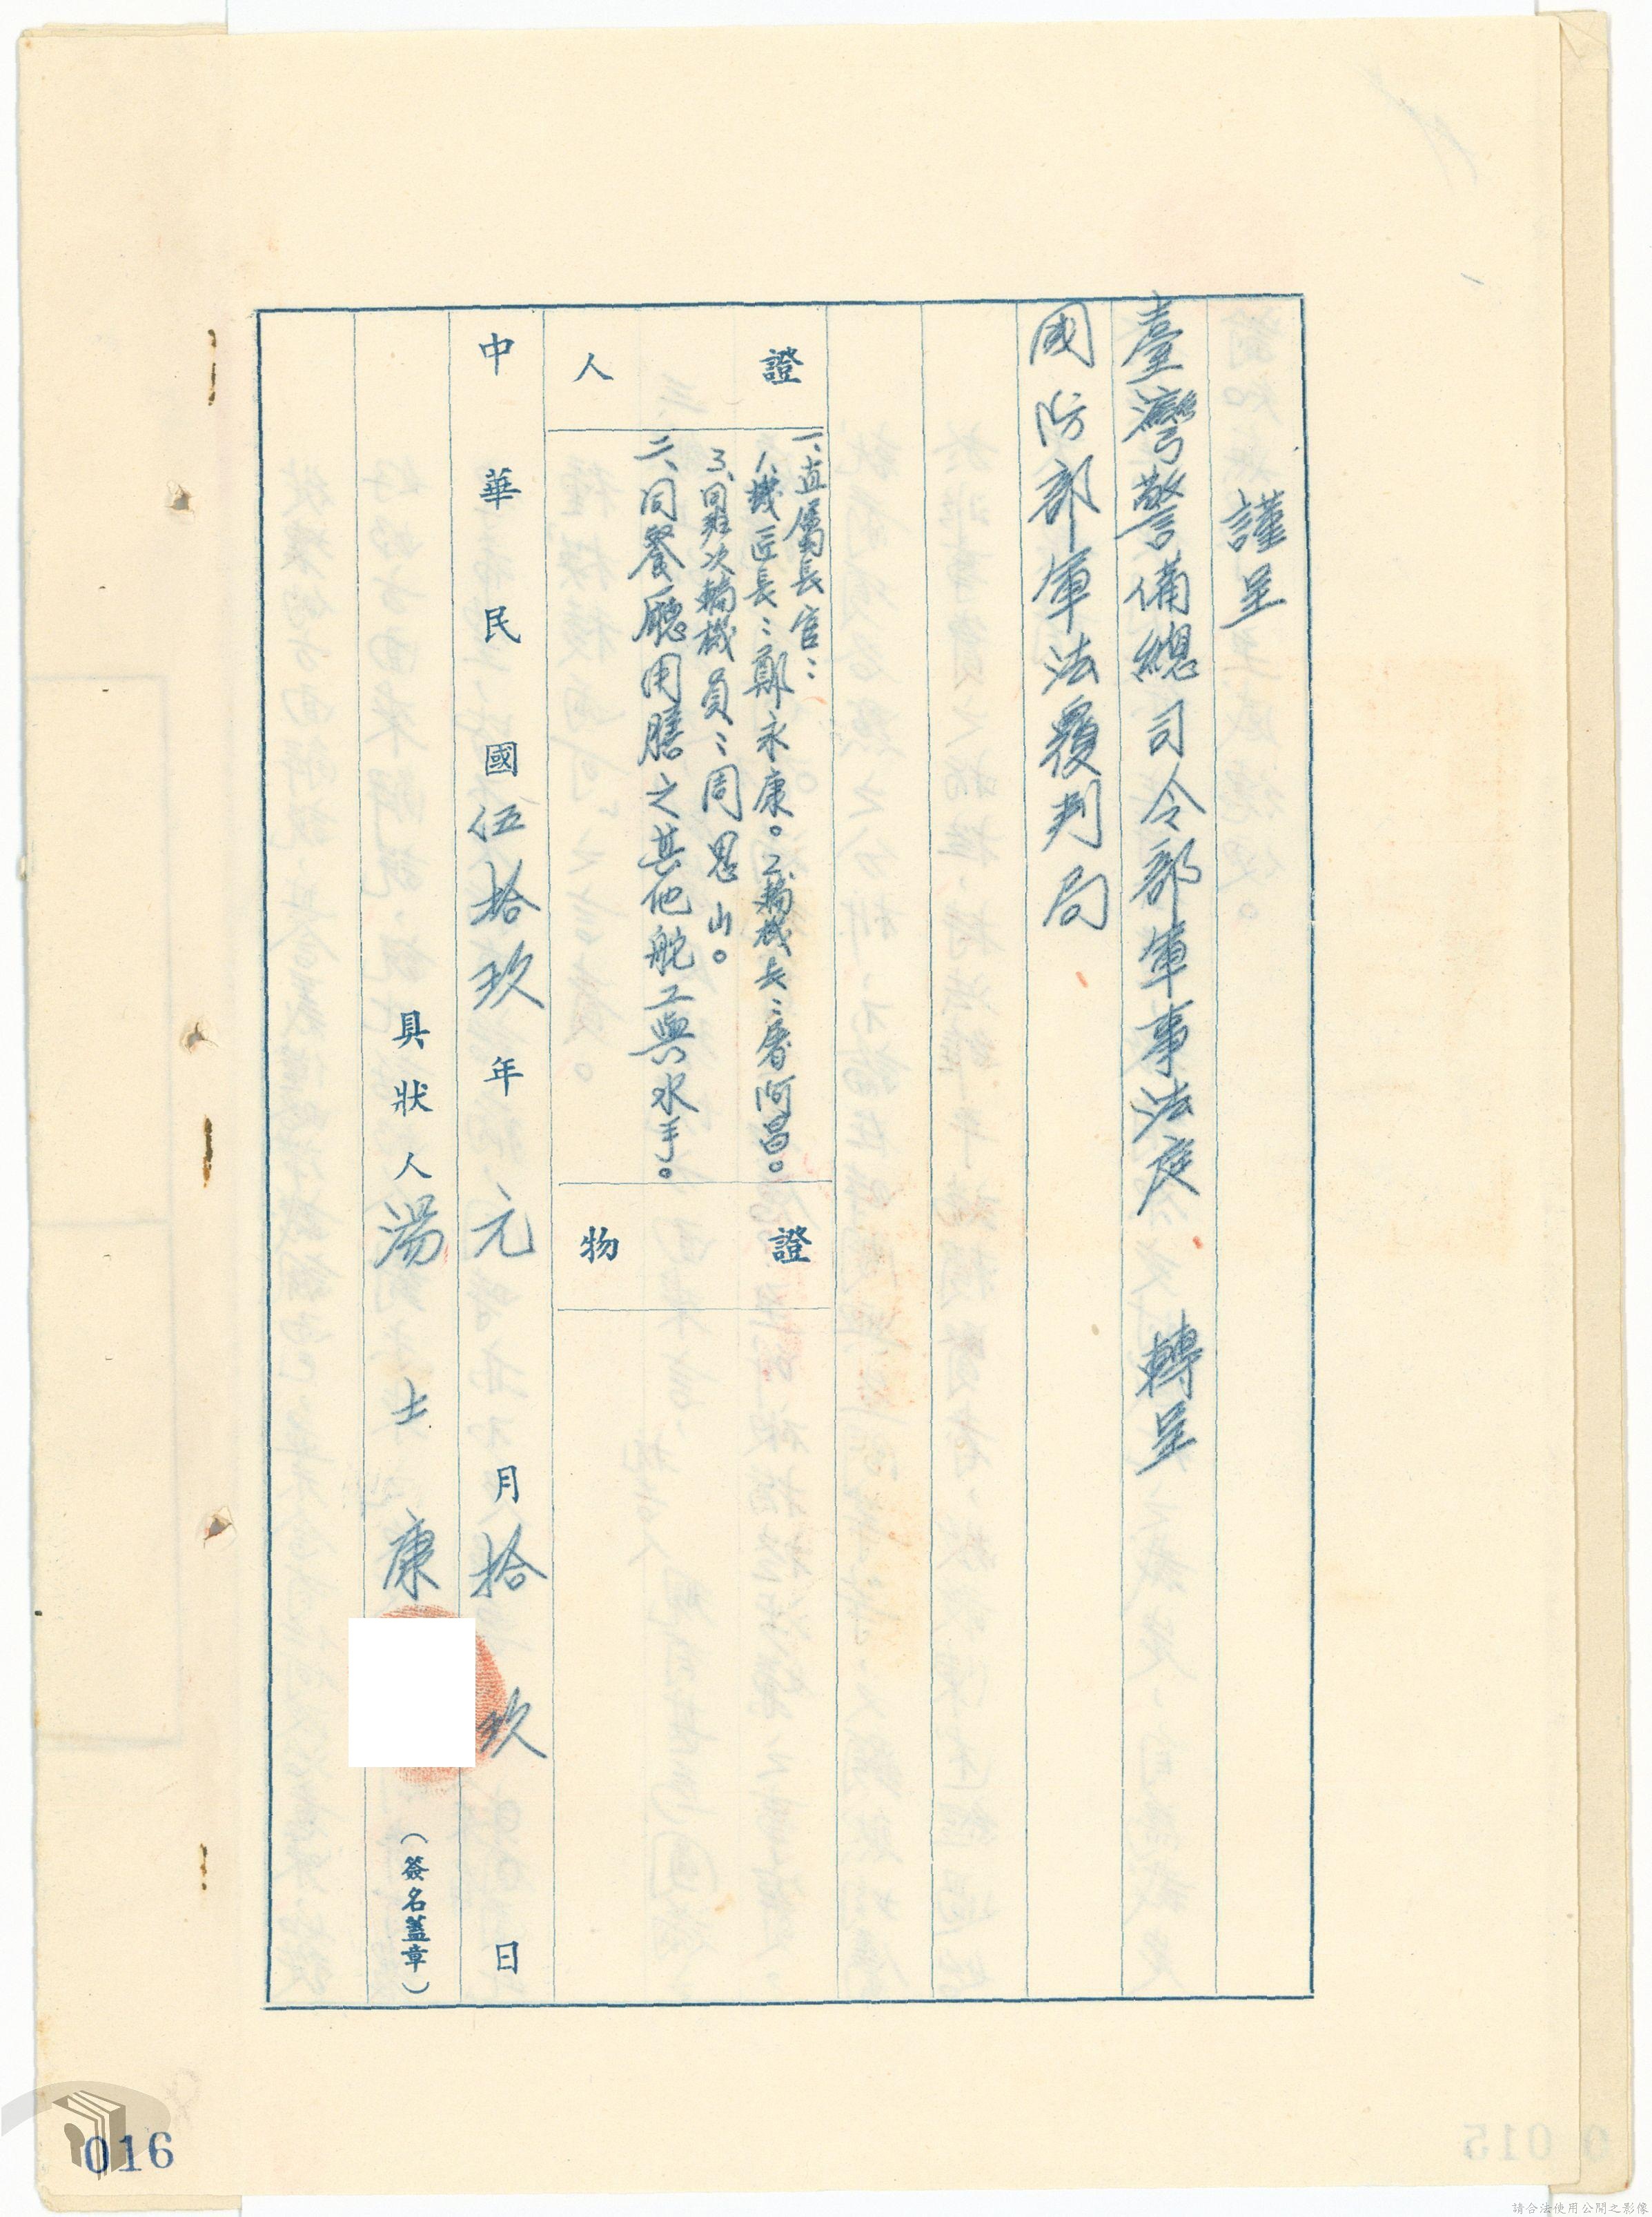 謹呈
臺灣警備總司令部軍事法庭 轉呈
國防部軍法覆判局
證人
一、直屬長官：
1.機匠長：鄭永康。2.輪機兵：詹阿昌。
3.同班次輪機員：周恩山。
二、同餐廳用膳之其他舵工與水手。
證物
中華民國伍拾玖年元月拾玖日
具狀人湯士康
（簽名蓋章）
016
請合法使用公開之影像